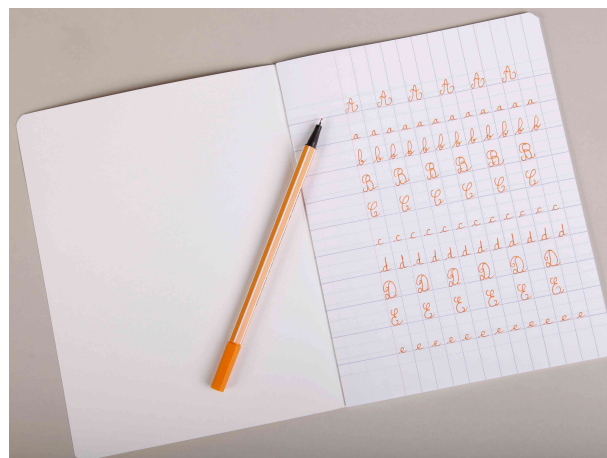 A A A A A A
a a a a a a a a a a a a
b b b b b b b b b b b b
B B B B B B
C C C C C C
c c c c c c c c c c c c
d d d d d d d d d d d d
D D D D D D
E E E E E E
e e e e e e e e e e e e